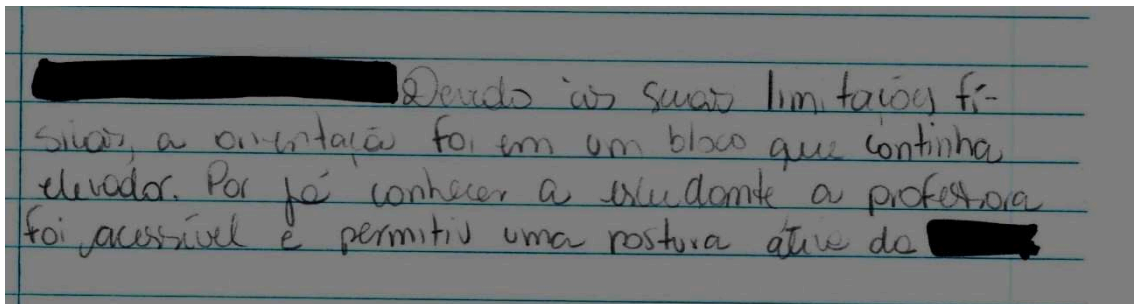 Devido às suas limitações fí-
sicas, a orientação foi em um bloco que continha
elevador. Por já conhecer a estudante a professora
foi acessível e permitiu uma postura ativa da